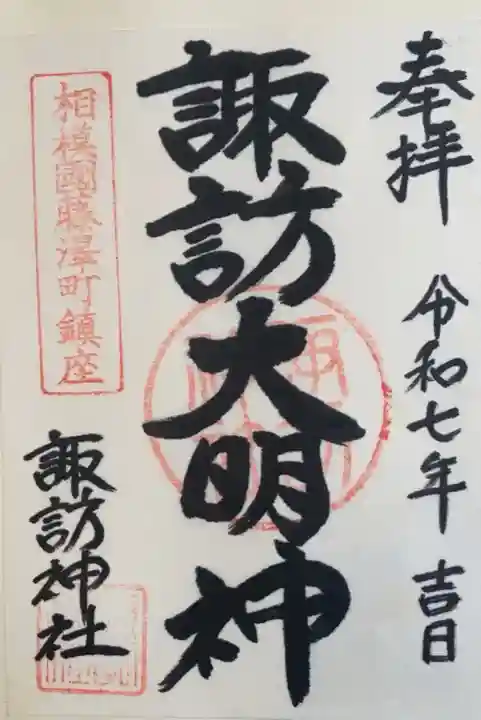 奉拝
令和七年 吉日
諏訪大明神
相模國藤澤町鎮座
諏訪神社